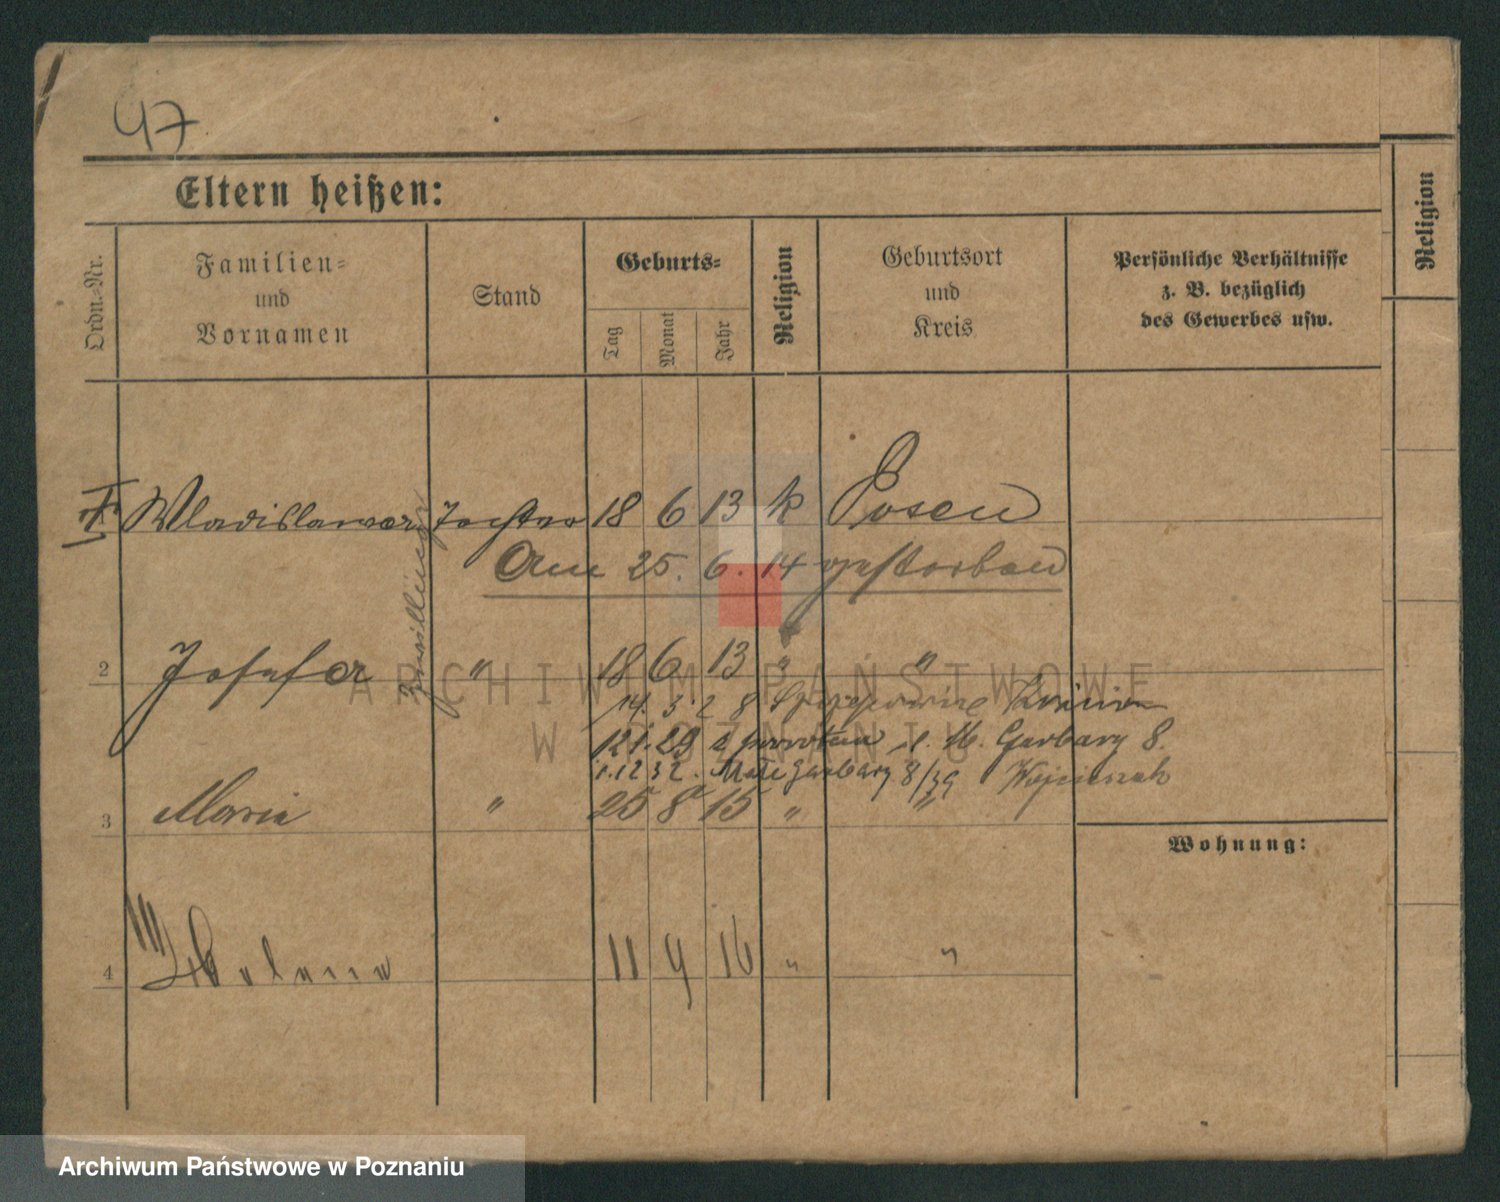 47
Eltern heißen:
Ordn.-Nr.
Familien- und Vornamen
Stand
Geburts-
Tag
Monat
Jahr
Religion
Geburtsort und Kreis
Persönliche Verhältnisse z. B. bezüglich des Gewerbes usw.
Religion
Wladislawa Tochter 18 6 13 k Posen
Am 25. 6. 14 gestorben
Zwillinge
2 Josefa " 18 6 13 " "
14. 3 28
121.29 Garbary 8.
1.12 32. Małe Garbary 8/39 Wojcieszak
3 Maria " 25 8 15 " "
Wohnung:
4 11 9 16 " "
ARCHIWUM PAŃSTWOWE
W POZNANIU
Archiwum Państwowe w Poznaniu